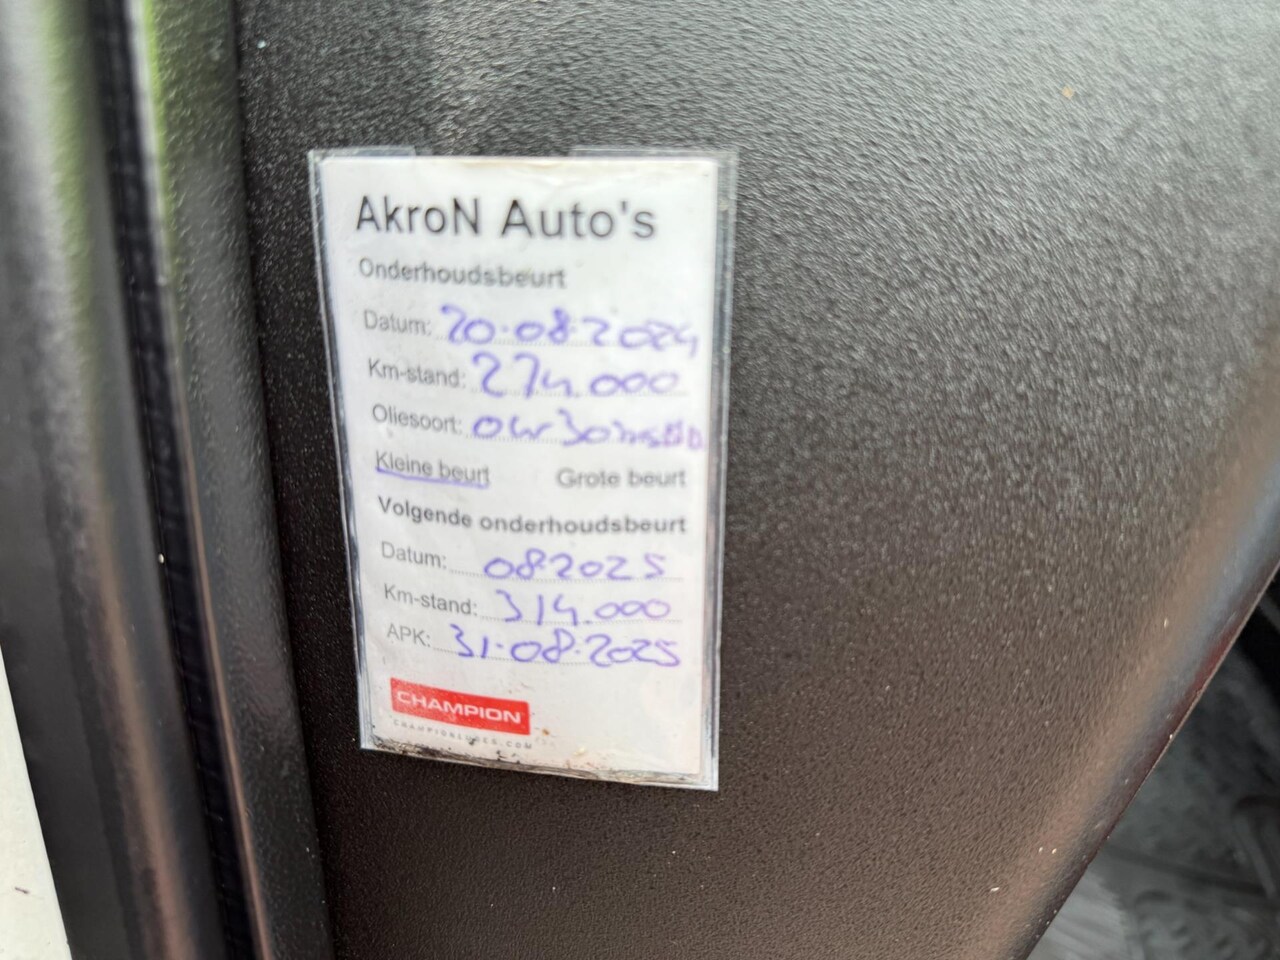 AkroN Auto's
Onderhoudsbeurt
Datum: 20.08.2024
Km-stand: 274.000
Oliesoort: 0w30
Kleine beurt Grote beurt
Volgende onderhoudsbeurt
Datum: 08.2025
Km-stand: 314.000
APK: 31.08.2025
CHAMPION